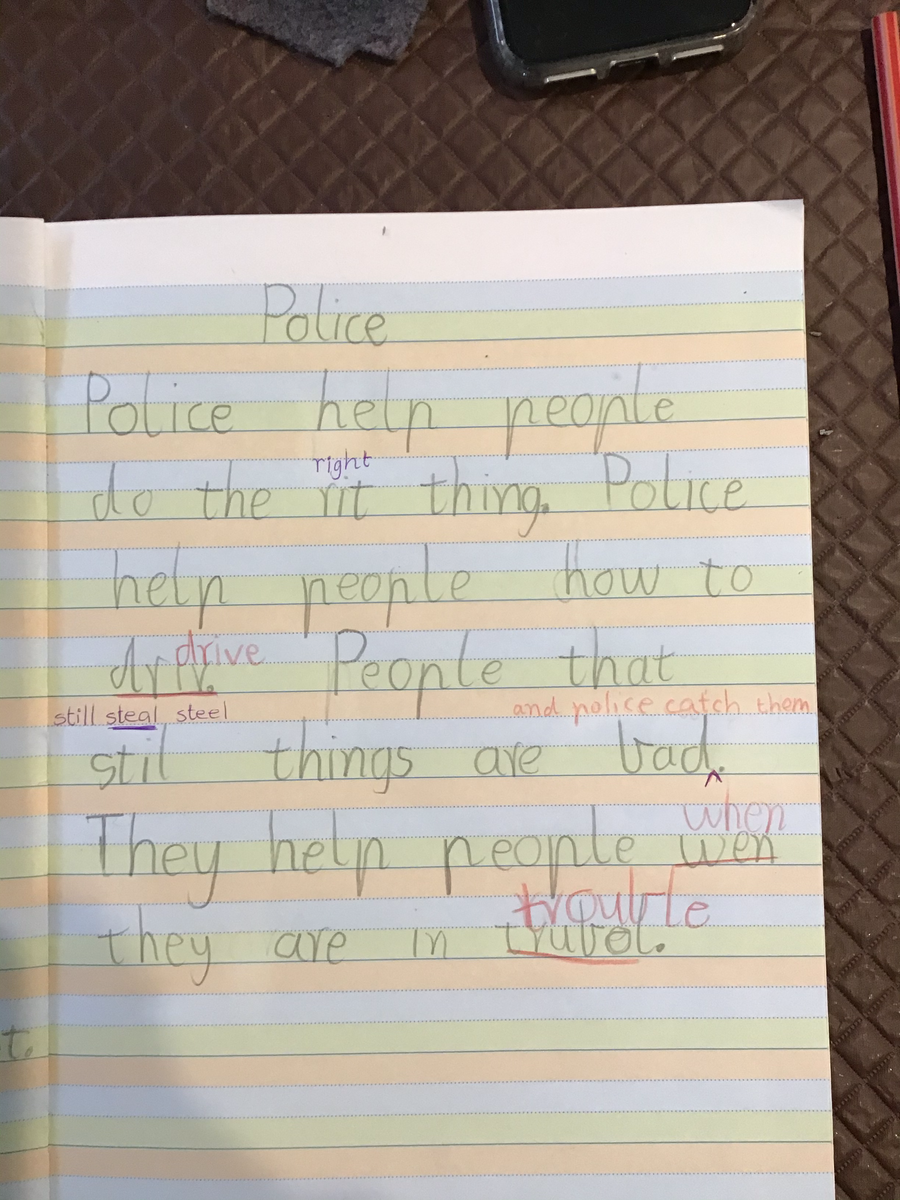 Police
Police help people
right
do the rit thing. Police
help people how to
drive
driv. People that
still steal steel
and police catch them
stil things are bad.
when
They help people wen
trouble
they are in trubol.
t.